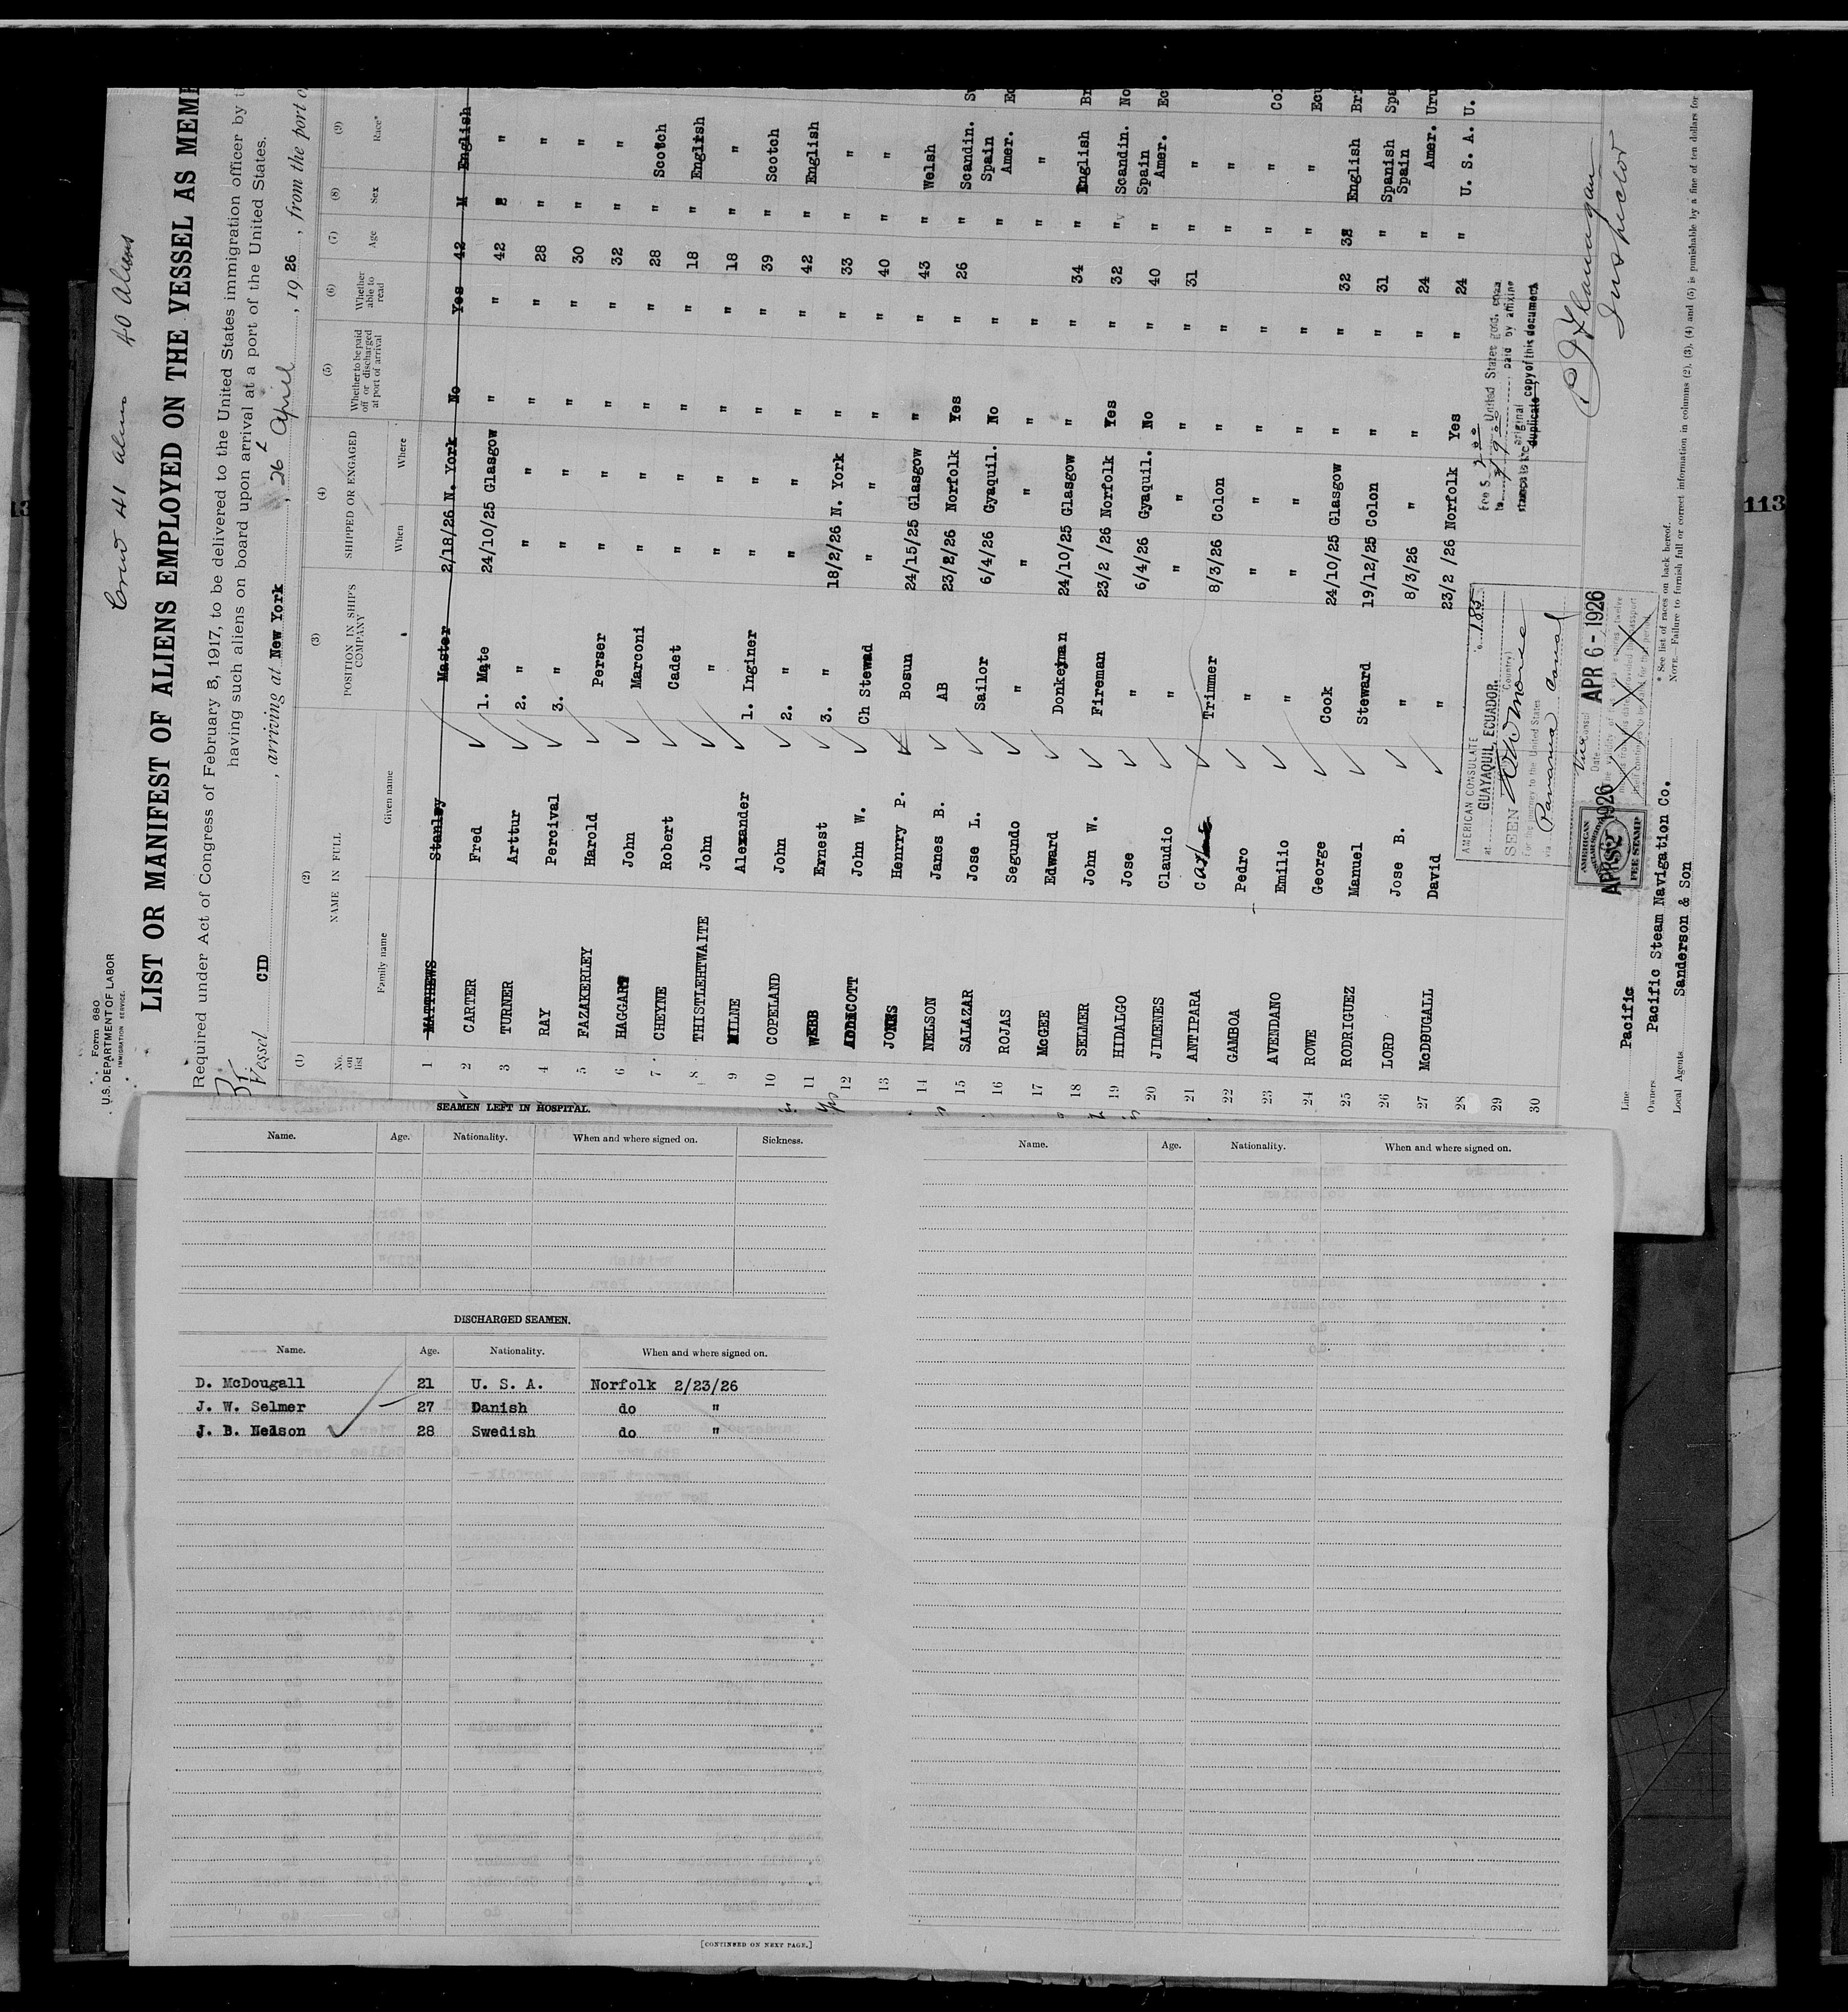 Crew 41 alums 40 Aliens
Form 680
U.S. DEPARTMENT OF LABOR
IMMIGRATION SERVICE.
LIST OR MANIFEST OF ALIENS EMPLOYED ON THE VESSEL AS MEM
Required under Act of Congress of February 5, 1917, to be delivered to the United States immigration officer by t
having such aliens on board upon arrival at a port of the United States.
Vessel CID, arriving at New York, 26 April, 1926, from the port of
(1) (2) (3) (4) (5) (6) (7) (8) (9)
No. on list NAME IN FULL Family name Given name POSITION IN SHIP'S COMPANY SHIPPED OR ENGAGED When Where Whether to be paid off or discharged at port of arrival Whether able to read Age Sex Race*
1 MATTHEWS Stanley Master 2/18/26 N. York No Yes 42 M English
2 CARTER Fred 1. Mate 24/10/25 Glasgow " " 42 " "
3 TURNER Arttur 2. " " " " " 28 " "
4 RAY Percival 3. " " " " " 30 " "
5 FAZAKERLEY Harold Perser " " " " 32 " "
6 HAGGART John Marconi " " " " 28 " Scotch
7 CHEYNE Robert Cadet " " " " 18 " English
8 THISTLEHTWAITE John " " " " " 18 " "
9 MILNE Alexander 1. Inginer " " " " 39 " Scotch
10 COPELAND John 2. " " " " " 42 " English
11 WEBB Ernest 3. " 18/2/26 N. York " " 33 " "
12 ADDICOTT John W. Ch Stewad " " " " 40 " "
13 JONES Henrry P. Bosun 24/15/25 Glasgow " " 43 " Welsh
14 NELSON Janes B. AB 23/2/26 Norfolk Yes " 26 " Scandin.
15 SALAZAR Jose L. Sailor 6/4/26 Gyaquil. No " " Spain Amer.
16 ROJAS Segundo " " " " " " "
17 McGEE Edward Donkeyman 24/10/25 Glasgow " " 34 " English
18 SELMER John W. Fireman 23/2 /26 Norfolk Yes " 32 " Scandin.
19 HIDALGO Jose " 6/4/26 Gyaquil. No " 40 " Spain Amer.
20 JIMENES Claudio " " " " " 31 " "
21 ANTIPARA Trimmer 8/3/26 Colon " " " "
22 GAMBOA Pedro " " " " " " "
23 AVENDANO Emilio " " " " " " "
24 ROWE George Cook 24/10/25 Glasgow " " 32 English
25 RODRIGUEZ Manuel Steward 19/12/25 Colon " " 31 " Spanish
26 LORD Jose B. " 8/3/26 " " " 24 " Spain Amer.
27 McDUGALL David " 23/2 /26 Norfolk Yes " 24 " U. S. A. U.
28
29
30
AMERICAN CONSULATE
at GUAYAQUIL, ECUADOR.
SEEN
For the journey to the United States
via Panama Canal
Vice Consul
Date APR 6 - 1926
AMERICAN
FEE STAMP
copy of this document
P J Flanagan
Inspector
Line Pacific
Owners Pacific Steam Navigation Co.
Local Agents Sanderson & Son
* See list of races on back hereof.
NOTE.—Failure to furnish full or correct information in columns (2), (3), (4) and (5) is punishable by a fine of ten dollars for
SEAMEN LEFT IN HOSPITAL.
Name. Age. Nationality. When and where signed on. Sickness.
DISCHARGED SEAMEN.
Name. Age. Nationality. When and where signed on.
D. McDougall 21 U. S. A. Norfolk 2/23/26
J. W. Selmer 27 Danish do "
J. B. Nelson 28 Swedish do "
[CONTINUED ON NEXT PAGE.]
Name. Age. Nationality. When and where signed on.
113